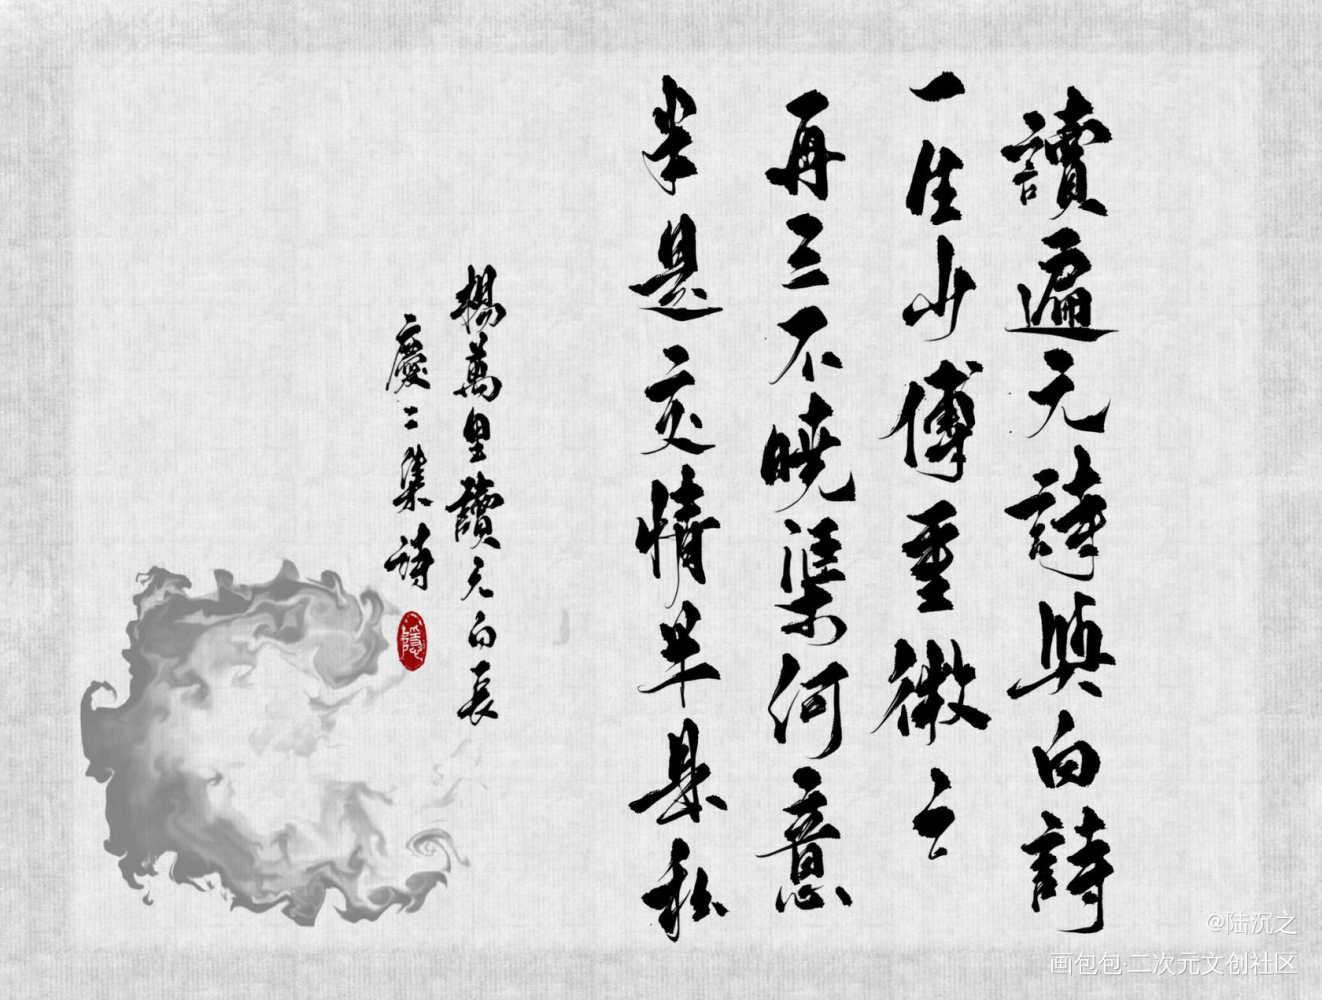 讀遍元詩與白詩
一生少傅重微之
再三不曉渠何意
半是交情半是私
楊萬里讀元白長
慶二集詩
隱
@陆沉之
画包包·二次元文创社区